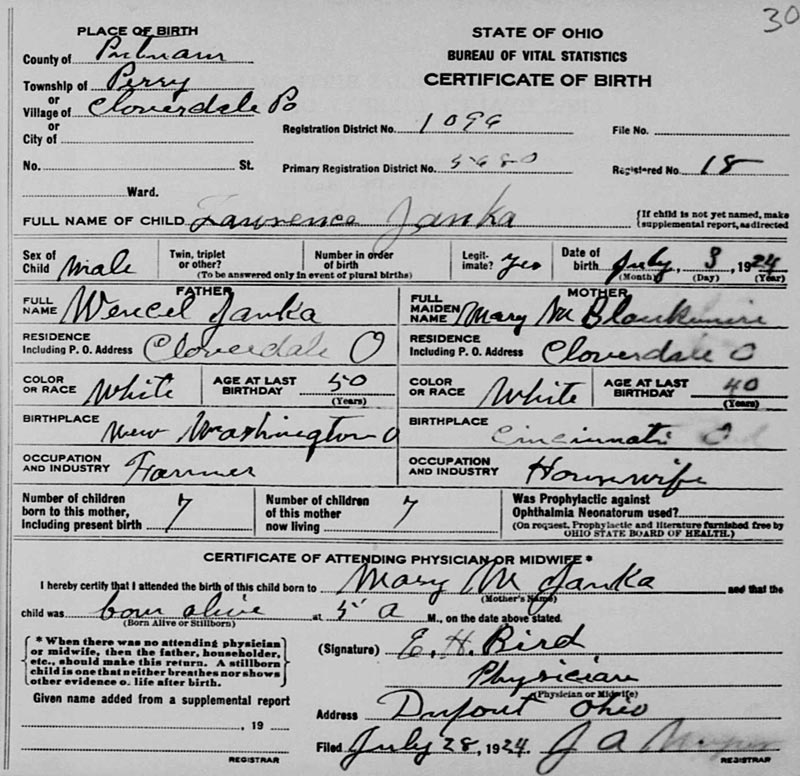 30
PLACE OF BIRTH
County of Putnam
Township of Perry
or
Village of Cloverdale Po
or
City of
No. St.
Ward.
STATE OF OHIO
BUREAU OF VITAL STATISTICS
CERTIFICATE OF BIRTH
Registration District No. 1099 File No.
Primary Registration District No. 5680 Registered No. 18
FULL NAME OF CHILD Lawrence Janka
{If child is not yet named, make
{supplemental report, as directed
Sex of Child Male
Twin, triplet or other?
Number in order of birth
(To be answered only in event of plural births)
Legitimate? Yes
Date of birth July, 3, 1924
(Month) (Day) (Year)
FATHER
FULL NAME Wencel Janka
MOTHER
FULL MAIDEN NAME Mary M
RESIDENCE
Including P. O. Address Cloverdale O
RESIDENCE
Including P. O. Address Cloverdale O
COLOR OR RACE White
AGE AT LAST BIRTHDAY 50
(Years)
COLOR OR RACE White
AGE AT LAST BIRTHDAY 40
(Years)
BIRTHPLACE New Washington O
BIRTHPLACE Cincinnati O
OCCUPATION AND INDUSTRY Farmer
OCCUPATION AND INDUSTRY Housewife
Number of children
born to this mother,
including present birth 7
Number of children
of this mother
now living 7
Was Prophylactic against
Ophthalmia Neonatorum used?
(On request, Prophylactic and literature furnished free by
OHIO STATE BOARD OF HEALTH.)
CERTIFICATE OF ATTENDING PHYSICIAN OR MIDWIFE*
I hereby certify that I attended the birth of this child born to Mary M Janka and that the
(Mother's Name)
child was born alive at 5 a M., on the date above stated.
(Born Alive or Stillborn)
* When there was no attending physician
or midwife, then the father, householder,
etc., should make this return. A stillborn
child is one that neither breathes nor shows
other evidence o. life after birth.
(Signature) E. H. Bird
Physician
(Physician or Midwife)
Given name added from a supplemental report
, 19
REGISTRAR
Address Dupont Ohio
Filed July 28, 1924. J A
REGISTRAR